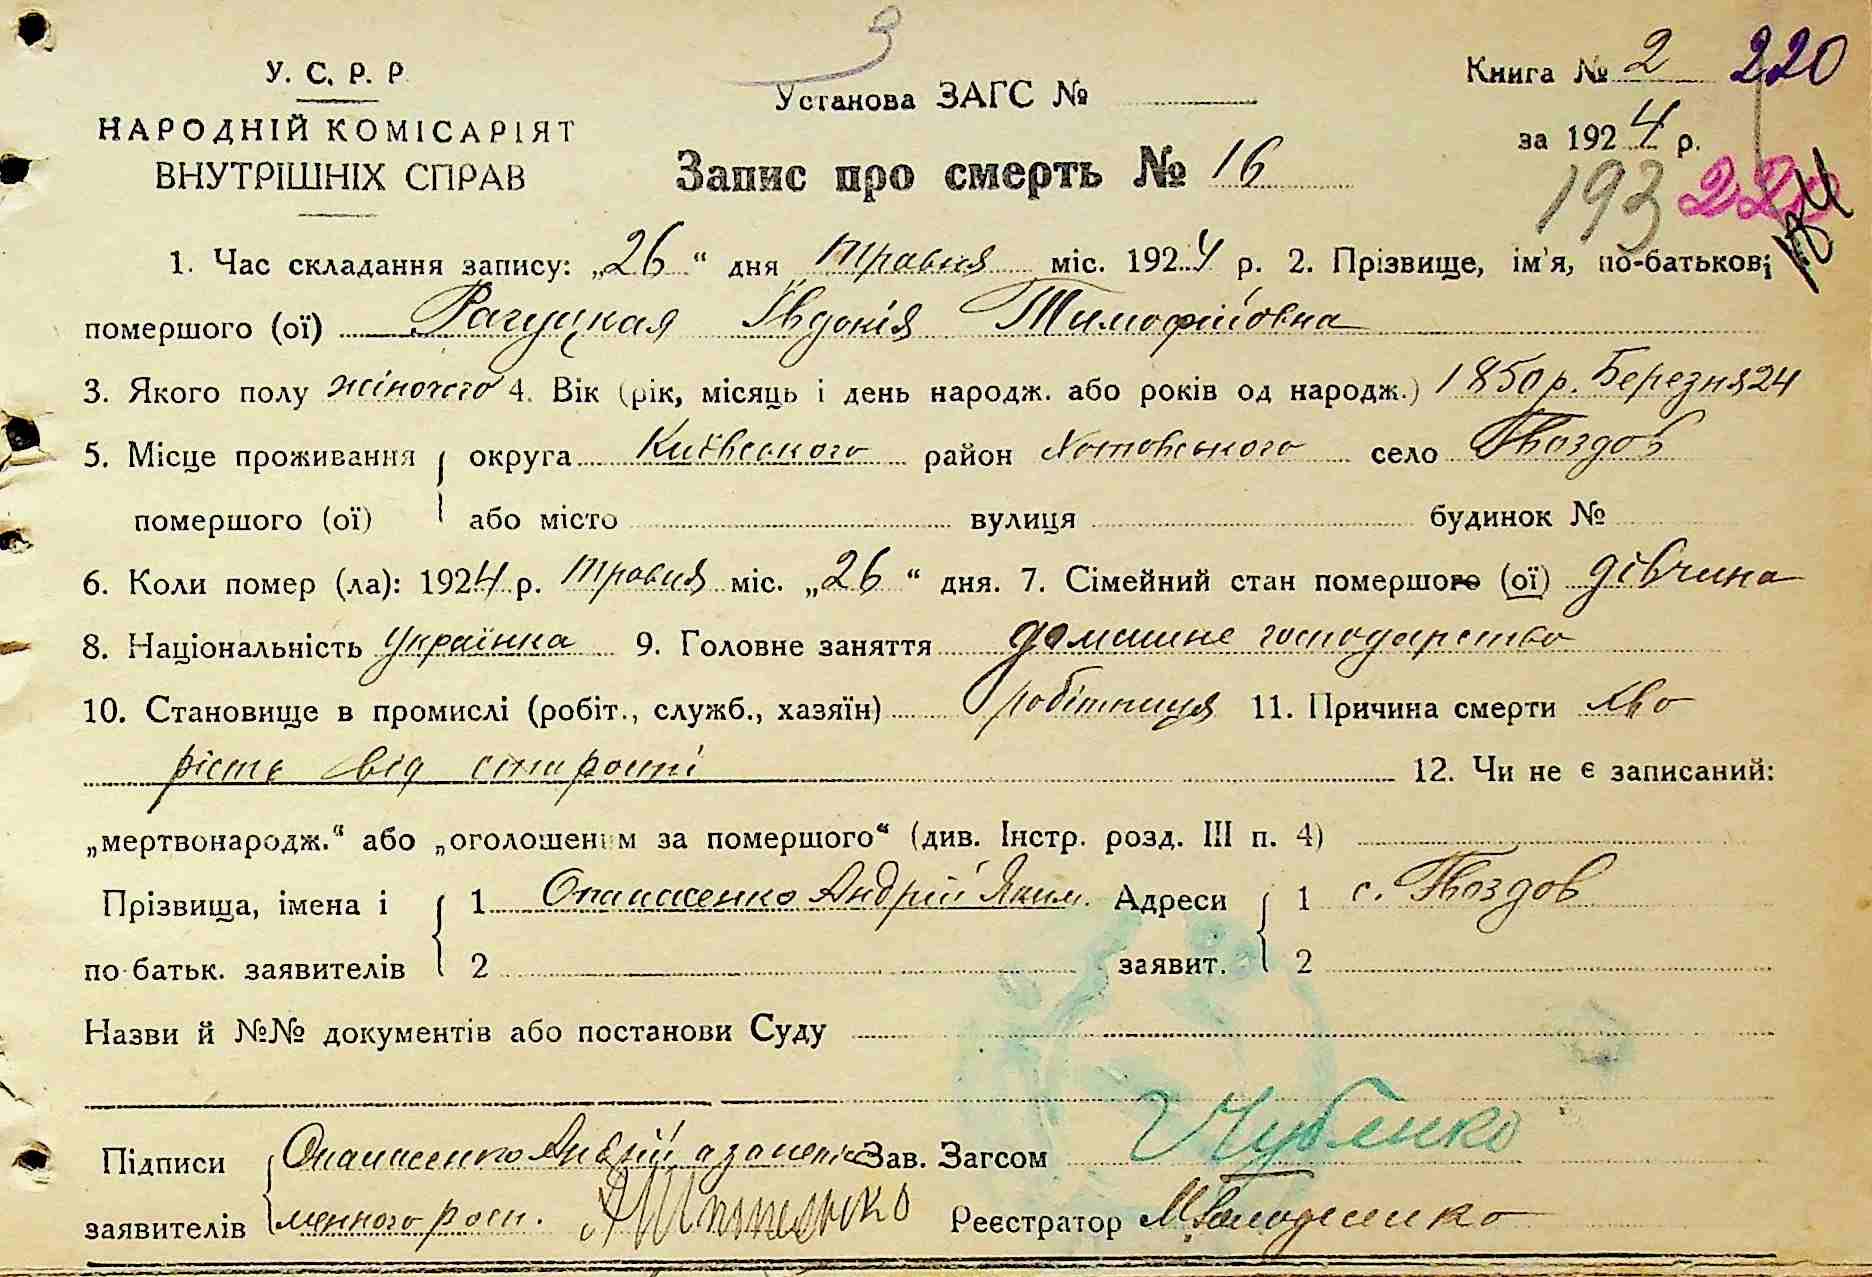 3
У. С. Р. Р
НАРОДНІЙ КОМІСАРІЯТ
ВНУТРІШНІХ СПРАВ
Установа ЗАГС №
Запис про смерть № 16
Книга № 2 220
за 1924 р.
193 220
184
1. Час складання запису: „26“ дня травня міс. 1924 р. 2. Прізвище, ім'я, по-батькові
помершого (ої) Рагуцкая Івдокія Тимофійовна
3. Якого полу жіночого 4. Вік (рік, місяць і день народж. або років од народж.) 1850 р. Березня 24
5. Місце проживання округа Київського район Хотовського село Гвоздов
помершого (ої) або місто вулиця будинок №
6. Коли помер (ла): 1924 р. травня міс. „26“ дня. 7. Сімейний стан помершого (ої) дівчина
8. Національність Українка 9. Головне заняття домашне господарство
10. Становище в промислі (робіт., служб., хазяїн) робітниця 11. Причина смерти хво
рість від старости 12. Чи не є записаний:
„мертвонародж.“ або „оголошеним за помершого“ (див. Інстр. розд. III п. 4)
Прізвища, імена і 1 Опанасенко Андрій Яким. Адреси 1 с. Гвоздов
по батьк. заявителів 2 заявит. 2
Назви й №№ документів або постанови Суду
Підписи Опанасенко Андрій а за неграм Зав. Загсом Чубенко
заявителів росп. Реєстратор